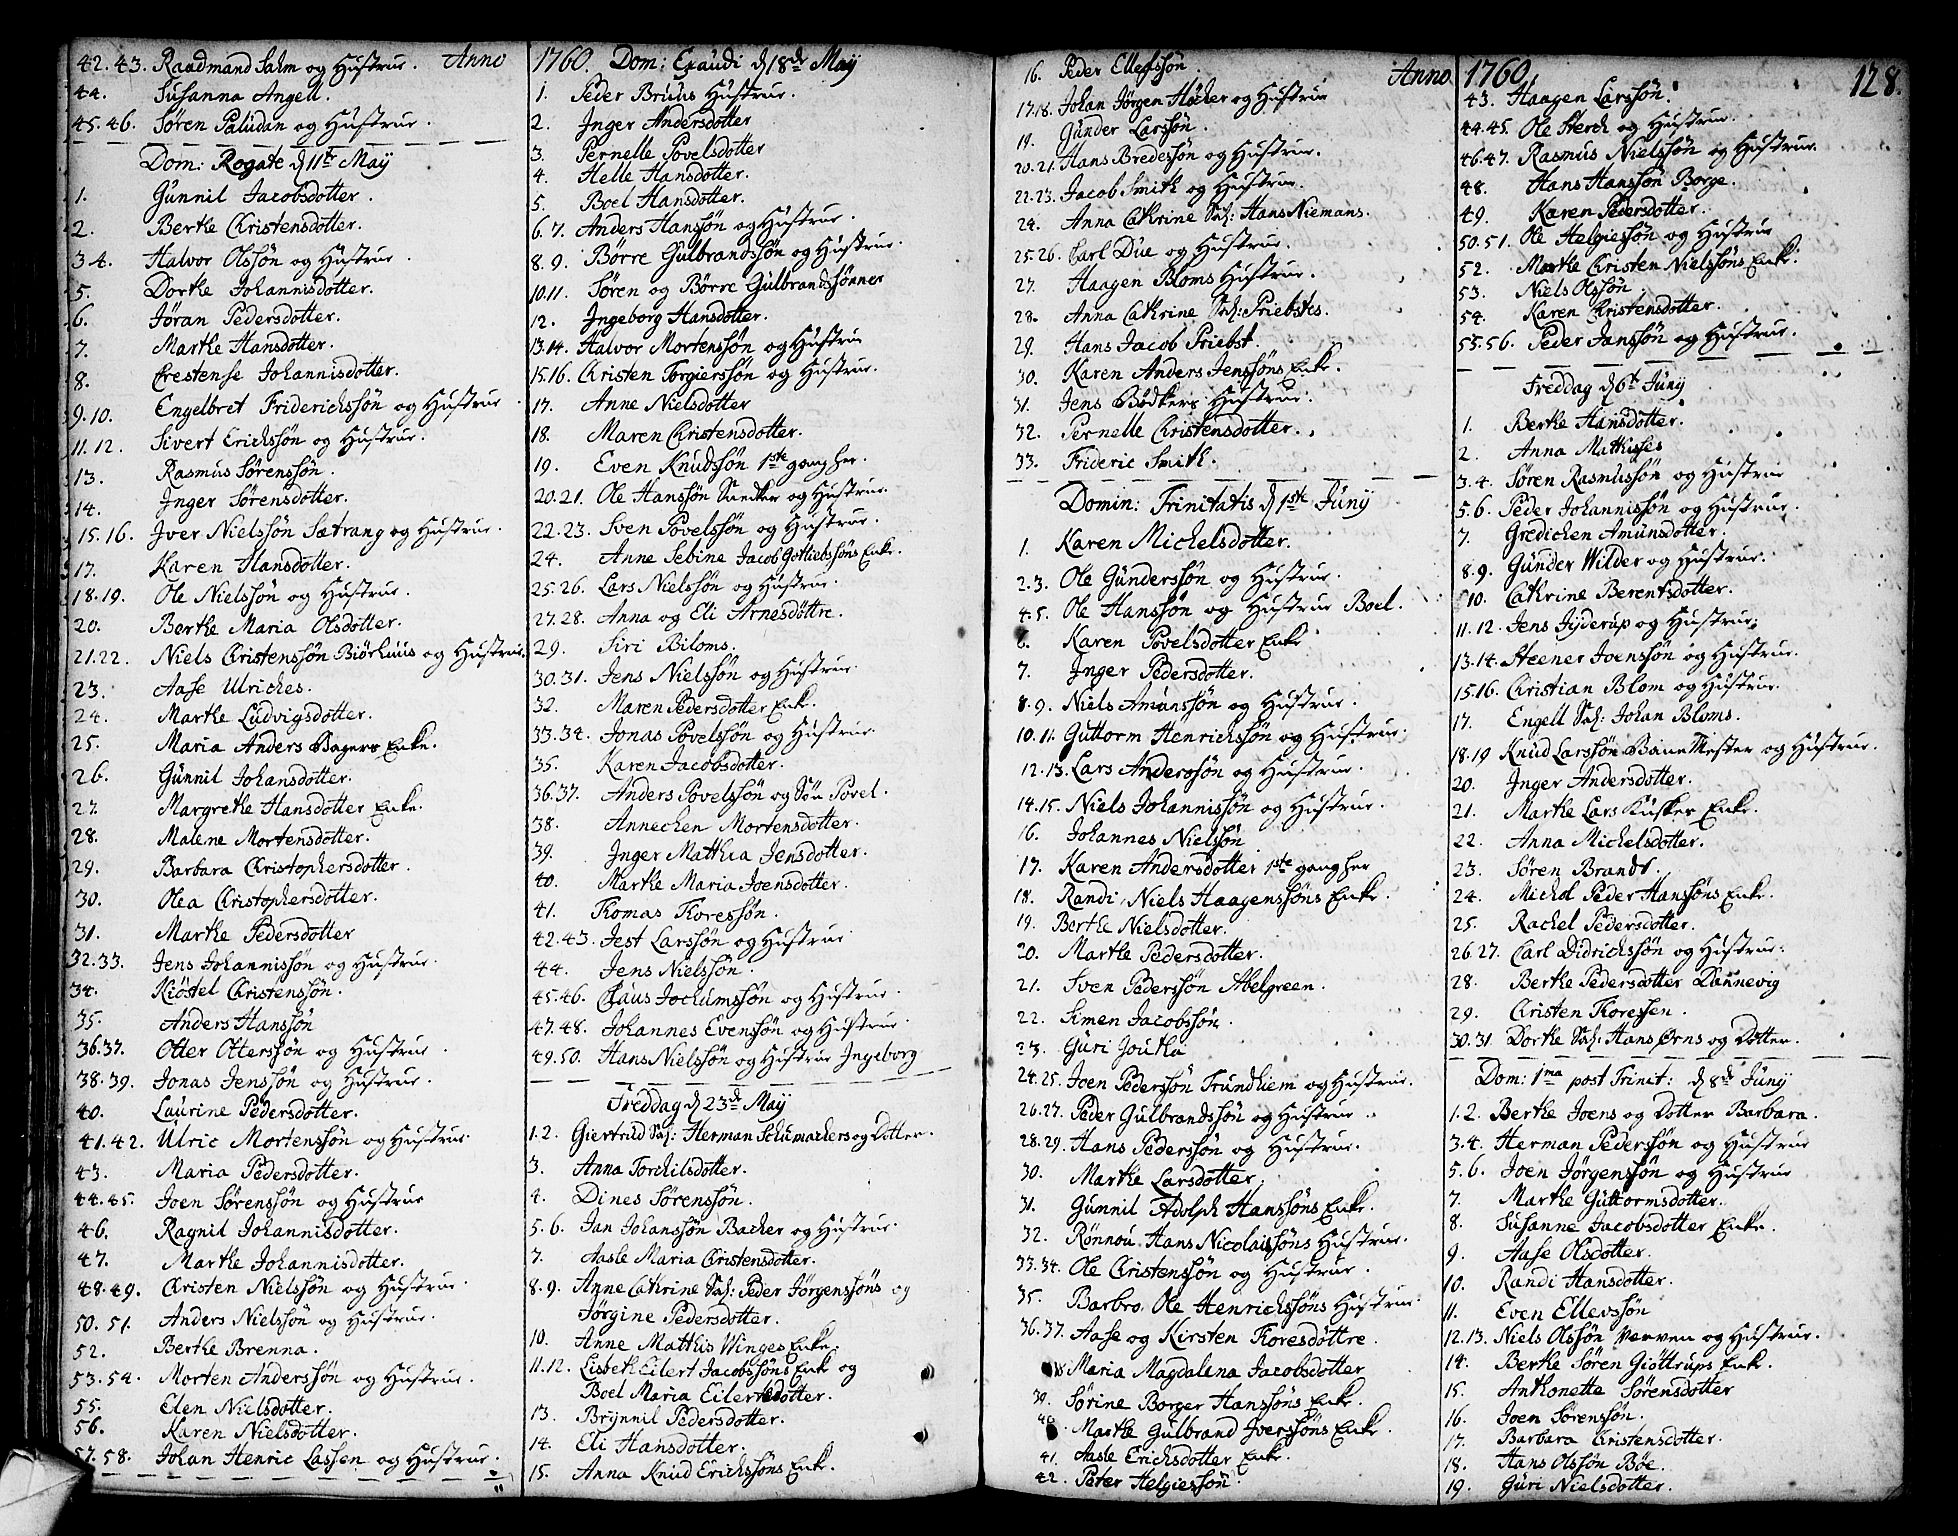 42. 43. Raadmand Salm og Hustrue. Anno
44. Susanna Angell.
45. 46. Søren Paludan og Hustrue.
Dom: Rogate d 11te Maÿ
1. Gunnil Jacobsdotter.
2. Berthe Christensdotter.
3 4. Halvor Olssøn og Hustrue.
5. Dorthe Johannisdotter.
6. Jøran Pedersdotter.
7. Marthe Hansdotter.
8. Crestense Johannisdotter.
9. 10. Engelbret Friderichssøn og Hustrue
11. 12. Sivert Erichssøn og Hustrue.
13. Rasmus Sørenssøn.
14. Inger Sørensdotter.
15. 16. Iver Nielssøn Sætrang og Hustrue.
17. Karen Hansdotter.
18. 19. Ole Nielssøn og Hustrue.
20. Berthe Maria Olsdotter.
21. 22. Niels Christenssøn Biørhuus og Hustrue.
23. Aase Ulriches.
24. Marthe Ludvigsdotter.
25. Maria Anders Bagers Enke.
26. Gunnil Johansdotter.
27. Margrethe Hansdotter Enke.
28. Malene Mortensdotter.
29. Barbara Christophersdotter.
30. Olea Christophersdotter.
31. Marthe Pedersdotter
32. 33. Jens Johannissøn og Hustrue.
34. Kiøstel Christenssøn.
35. Anders Hanssøn
36. 37. Otter Otterssøn og Hustrue
38. 39. Jonas Jenssøn og Hustrue.
40. Laurine Pedersdotter.
41. 42. Ulric Mortenssøn og Hustrue.
43. Maria Pedersdotter.
44. 45. Joen Sørenssøn og Hustrue
46. Ragnil Johannisdotter.
47. Marthe Johannisdotter.
48. 49. Christen Nielssøn og Hustrue
50. 51. Anders Nielssøn og Hustrue.
52. Berthe Brenna.
53. 54. Morten Anderssøn og Hustrue.
55. Elen Nielsdotter.
56. Karen Nielsdotter.
57. 58. Johan Henric Lassen og Hustrue.
1760. Dom: Exaudi d 18de Maÿ
1. Peder Bruus Hustrue.
2. Inger Andersdotter
3. Pernelle Povelsdotter
4. Helle Hansdotter.
5. Boel Hansdotter.
6. 7. Anders Hanssøn og Hustrue.
8. 9. Børre Gulbrandssøn og Hustrue.
10. 11. Søren og Børre Gulbrandssønner
12. Ingeborg Hansdotter.
13. 14. Halvor Mortenssøn og Hustrue
15. 16. Christen Torgierssøn og Hustrue.
17. Anne Nielsdotter
18. Maren Christensdotter.
19. Even Knudssøn 1ste gang her.
20. 21. Ole Hanssøn Sneker og Hustrue.
22. 23. Sven Povelssøn og Hustrue.
24. Anne Sebine Jacob Gotliebssøns Enke.
25. 26. Lars Nielssøn og Hustrue.
27. 28. Anna og Eli Arnesdøttre.
29. Siri Biloms.
30. 31. Jens Nielssøn og Hustrue.
32. Maren Pedersdotter Enke.
33. 34. Jonas Povelssøn og Hustrue
35. Karen Jacobsdotter.
36. 37. Anders Povelssøn og Søn Povel.
38. Annechen Mortensdotter.
39. Inger Matthia Jensdotter.
40. Marthe Maria Joensdotter.
41. Thomas Thoressøn.
42. 43. Jest Larssøn og Hustrue
44. Jens Nielssøn.
45. 46. Claus Jochumssøn og Hustrue.
47. 48. Johannes Evenssøn og Hustrue
49. 50. Hans Nielssøn og Hustrue Ingeborg
Freddag d 23de Maÿ
1. 2. Giertrud Sal: Herman Schumachers og Dotter.
3. Anna Torchilsdotter.
4. Dines Sørenssøn.
5. 6. Jan Johanssøn Backer og Hustrue.
7. Aasle Maria Christensdotter.
8. 9. Anne Cathrine Sal: Peder Jørgenssøns og
Jørgine Pedersdotter.
10. Anne Matthis Winges Enke.
11. 12. Lisbeth Eilert Jacobssøns Enk og
Boel Maria Eilertsdotter.
13. Brynnil Pedersdotter.
14. Eli Hansdotter.
15. Anna Knud Erichssøns Enke.
16. Peder Ellefssøn. Anno
17. 18. Johan Jørgen Høcker og Hustrue
19. Gunder Larssøn.
20. 21. Hans Bredessøn og Hustrue.
22. 23. Jacob Smith og Hustrue.
24. Anna Cathrine Sal: Hans Niemans.
25. 26. Carl Due og Hustrue.
27. Haagen Bloms Hustrue.
28. Anna Cathrine Sal: Priebstes.
29. Hans Jacob Priebst.
30. Karen Anders Jenssøns Enke.
31. Jens Bødkers Hustrue.
32. Pernelle Christensdotter.
33. Frideric Smith.
Domin: Trinitatis d 1ste Junÿ
1. Karen Michelsdotter.
2. 3. Ole Gunderssøn og Hustrue.
4. 5. Ole Hanssøn og Hustrue Boel.
6. Karen Povelsdotter Enke
7. Inger Pedersdotter.
8. 9. Niels Amunssøn og Hustrue.
10. 11. Guttorm Henrichssøn og Hustrue.
12. 13. Lars Anderssøn og Hustrue.
14. 15. Niels Johannissøn og Hustrue.
16. Johannes Nielssøn
17. Karen Andersdotter 1ste gang her
18. Randi Niels Haagenssøns Enke.
19. Berthe Nielsdotter.
20. Marthe Pedersdotter.
21. Sven Pederssøn Abelgreen.
22. Simen Jacobssøn.
23. Guri Joutha
24. 25. Joen Pederssøn Trundhiem og Hustrue.
26. 27. Peder Gulbrandssøn og Hustrue.
28. 29. Hans Pederssøn og Hustrue.
30. Marthe Larsdotter.
31. Gunnil Adolph Hanssøns Enke.
32. Rønnou Hans Nicolaissøns Hustrue.
33. 34. Ole Christenssøn og Hustrue.
35. Barbro Ole Henrichssøns Hustrue.
36. 37. Aase og Kirsten Thoresdøttre.
38 Maria Magdalena Jacobsdotter
39. Sørine Borger Hanssøns Enke.
40. Marthe Gulbrand Iverssøns Enke.
41. Aasle Erichsdotter Enke.
42. Peter Helgiessøn
1760. 128.
43. Haagen Larssøn.
44. 45. Ole Sterch og Hustrue.
46. 47. Rasmus Nielssøn og Hustrue.
48. Hans Hanssøn Borge.
49. Karen Pedersdotter.
50. 51. Ole Helgiessøn og Hustrue
52. Marthe Christen Nielssøns Enke.
53. Niels Olssøn.
54. Karen Christensdotter.
55. 56. Peder Janssøn og Hustrue.
Freddag d 6te Junÿ
1. Berthe Hansdotter.
2. Anna Mathises
3. 4. Søren Rasmussøn og Hustrue
5. 6. Peder Johannissøn og Hustrue.
7. Gredichen Amunsdotter.
8. 9. Gunder Wilder og Hustrue.
10. Cathrine Berentsdotter.
11. 12. Jens Jÿderup og Hustrue.
13. 14. Steener Joenssøn og Hustrue.
15. 16. Christian Blom og Hustrue.
17. Engell Sal: Johan Bloms.
18. 19 Knud Larssøn Baune Mester og Hustrue.
20. Inger Andersdotter.
21. Marthe Lars Kusker Enke.
22. Anna Michelsdotter.
23. Søren Brandt.
24. Michel Peder Hanssøns Enke.
25. Rachel Pedersdotter.
26. 27. Carl Didrichssøn og Hustrue.
28. Berthe Pedersdotter Dannevig
29. Christen Thoressen.
30. 31. Dorthe Sal: Hans Ørns og Dotter.
Dom: 1ma post Trinit: d 8de Junÿ
1. 2. Berthe Joens og Dotter Barbara.
3. 4. Herman Pederssøn og Hustrue
5. 6. Joen Jørgenssøn og Hustrue
7. Marthe Guttormsdotter.
8. Susanne Jacobsdotter Enke.
9. Aase Olsdotter.
10. Randi Hansdotter.
11. Even Ellevssøn
12. 13. Niels Olssøn Verven og Hustrue.
14. Berthe Søren Giøttrups Enk.
15. Anthonette Sørensdotter
16. Joen Sørenssøn.
17. Barbara Christensdotter.
18. Hans Olssøn Bøe.
19. Guri Nielsdotter.